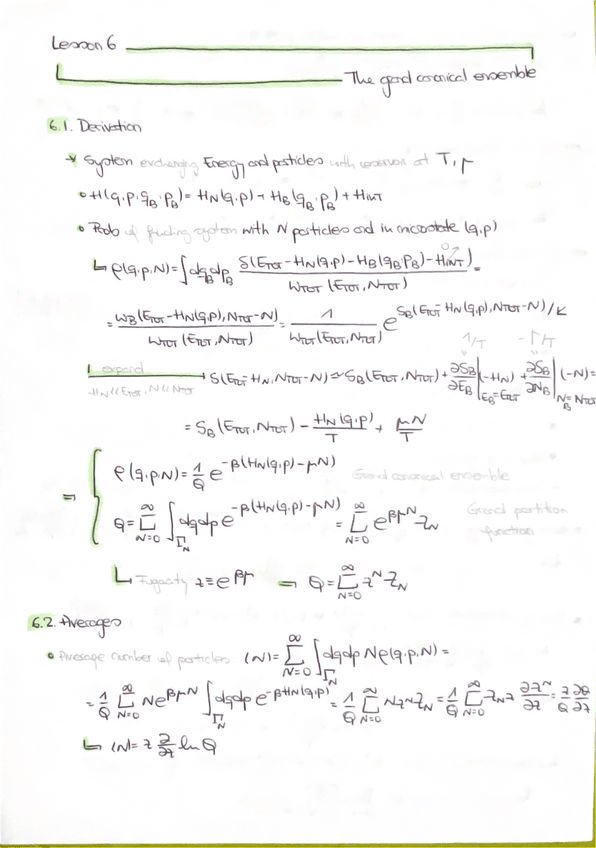 Lesson 6
The grand canonical ensemble
6.1. Derivation
* System exchanging Energy and particles with reservoir at T, μ
• H(q,p,q_B,p_B) = H_N(q,p) + H_B(q_B,p_B) + H_INT
• Prob of finding system with N particles and in microstate (q,p)
↳ ρ(q,p,N) = ∫dq_B dp_B δ(E_TOT - H_N(q,p) - H_B(q_B,p_B) - H_INT) / W_TOT(E_TOT, N_TOT) =
0
= W_B(E_TOT - H_N(q,p), N_TOT - N) / W_TOT(E_TOT, N_TOT) = 1 / W_TOT(E_TOT, N_TOT) e^{S_B(E_TOT - H_N(q,p), N_TOT - N)/K}
1/T -μ/T
expand → S(E_TOT - H_N, N_TOT - N) ≃ S_B(E_TOT, N_TOT) + ∂S_B/∂E_B |_{E_B=E_TOT} (-H_N) + ∂S_B/∂N_B |_{N_B=N_TOT} (-N) =
H_N << E_TOT, N << N_TOT
= S_B(E_TOT, N_TOT) - H_N(q,p)/T + μN/T
= { ρ(q,p,N) = 1/Q e^{-β(H_N(q,p) - μN)} Grand canonical ensemble
Q = Σ_{N=0}^{∞} ∫_{Γ_N} dqdp e^{-β(H_N(q,p) - μN)} = Σ_{N=0}^{∞} e^{βμN} Z_N Grand partition function
↳ Fugacity z ≡ e^{βμ} ⇒ Q = Σ_{N=0}^{∞} z^N Z_N
6.2. Averages
• Average number of particles ⟨N⟩ = Σ_{N=0}^{∞} ∫_{Γ_N} dqdp Nρ(q,p,N) =
= 1/Q Σ_{N=0}^{∞} N e^{βμN} ∫_{Γ_N} dqdp e^{-βH_N(q,p)} = 1/Q Σ_{N=0}^{∞} N z^N Z_N = 1/Q Σ_{N=0}^{∞} Z_N z ∂z^N/∂z = z/Q ∂Q/∂z
↳ ⟨N⟩ = z ∂/∂z ln Q